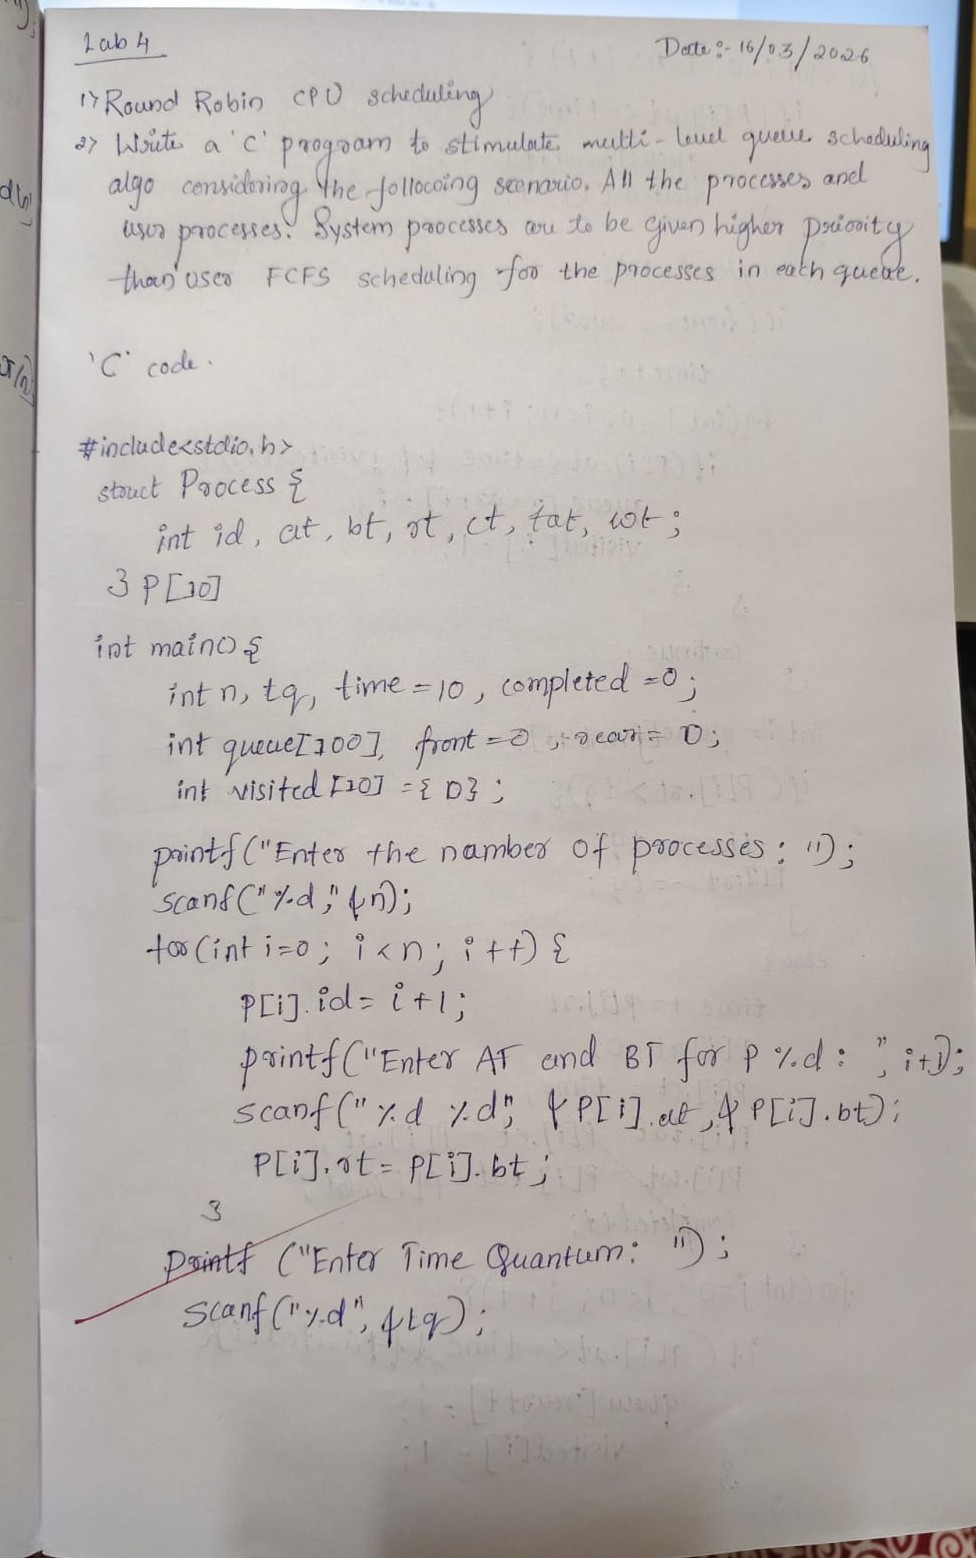 Lab 4
Date :- 16/03/2026
1) Round Robin CPU scheduling
2) Write a 'C' program to stimulate multi-level queue scheduling
algo considering the following scenario. All the processes and
user processes. System processes are to be given higher priority
than user FCFS scheduling for the processes in each queue.
'C' code.
#include<stdio.h>
struct Process {
int id, at, bt, rt, ct, tat, wt;
} P[10]
int main() {
int n, tq, time = 10, completed = 0;
int queue[100], front = 0, rear = 0;
int visited [10] = {0};
printf("Enter the number of processes: ");
scanf("%d", &n);
for(int i=0; i<n; i++) {
P[i].id = i+1;
printf("Enter AT and BT for P %d: ", i+1);
scanf("%d %d", &P[i].at, &P[i].bt);
P[i].rt = P[i].bt;
}
printf ("Enter Time Quantum: ");
scanf("%d", &tq);